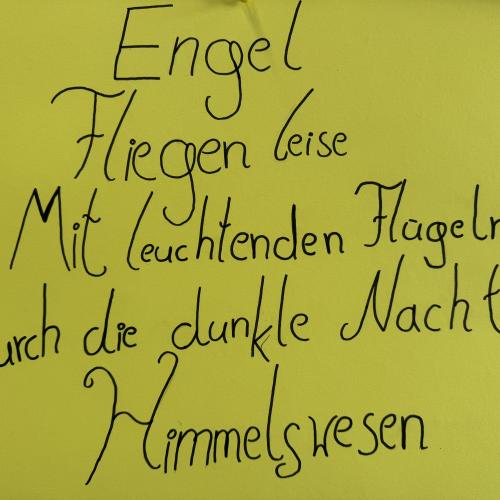 Engel
Fliegen leise
Mit leuchtenden Flügeln
urch die dunkle Nacht
Himmelswesen